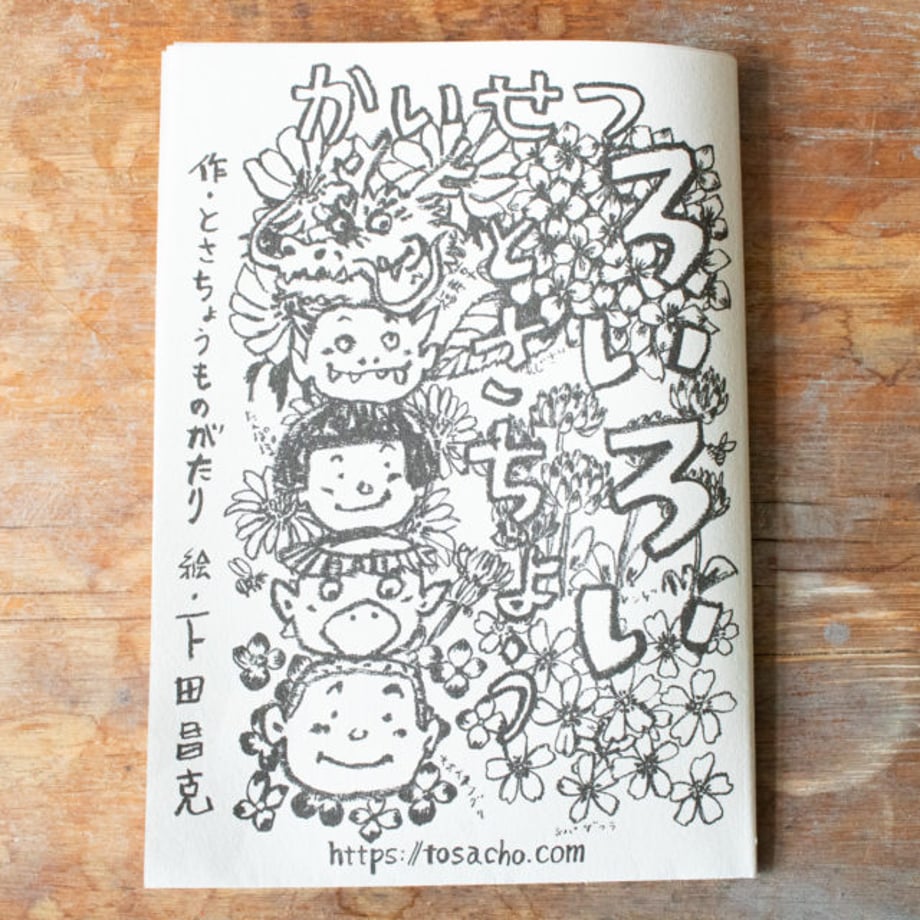 かいせつ
ろいろい
と・さ・ちょ・う
作・とさちょうものがたり 絵・下田昌克
シバザクラ
https://tosacho.com